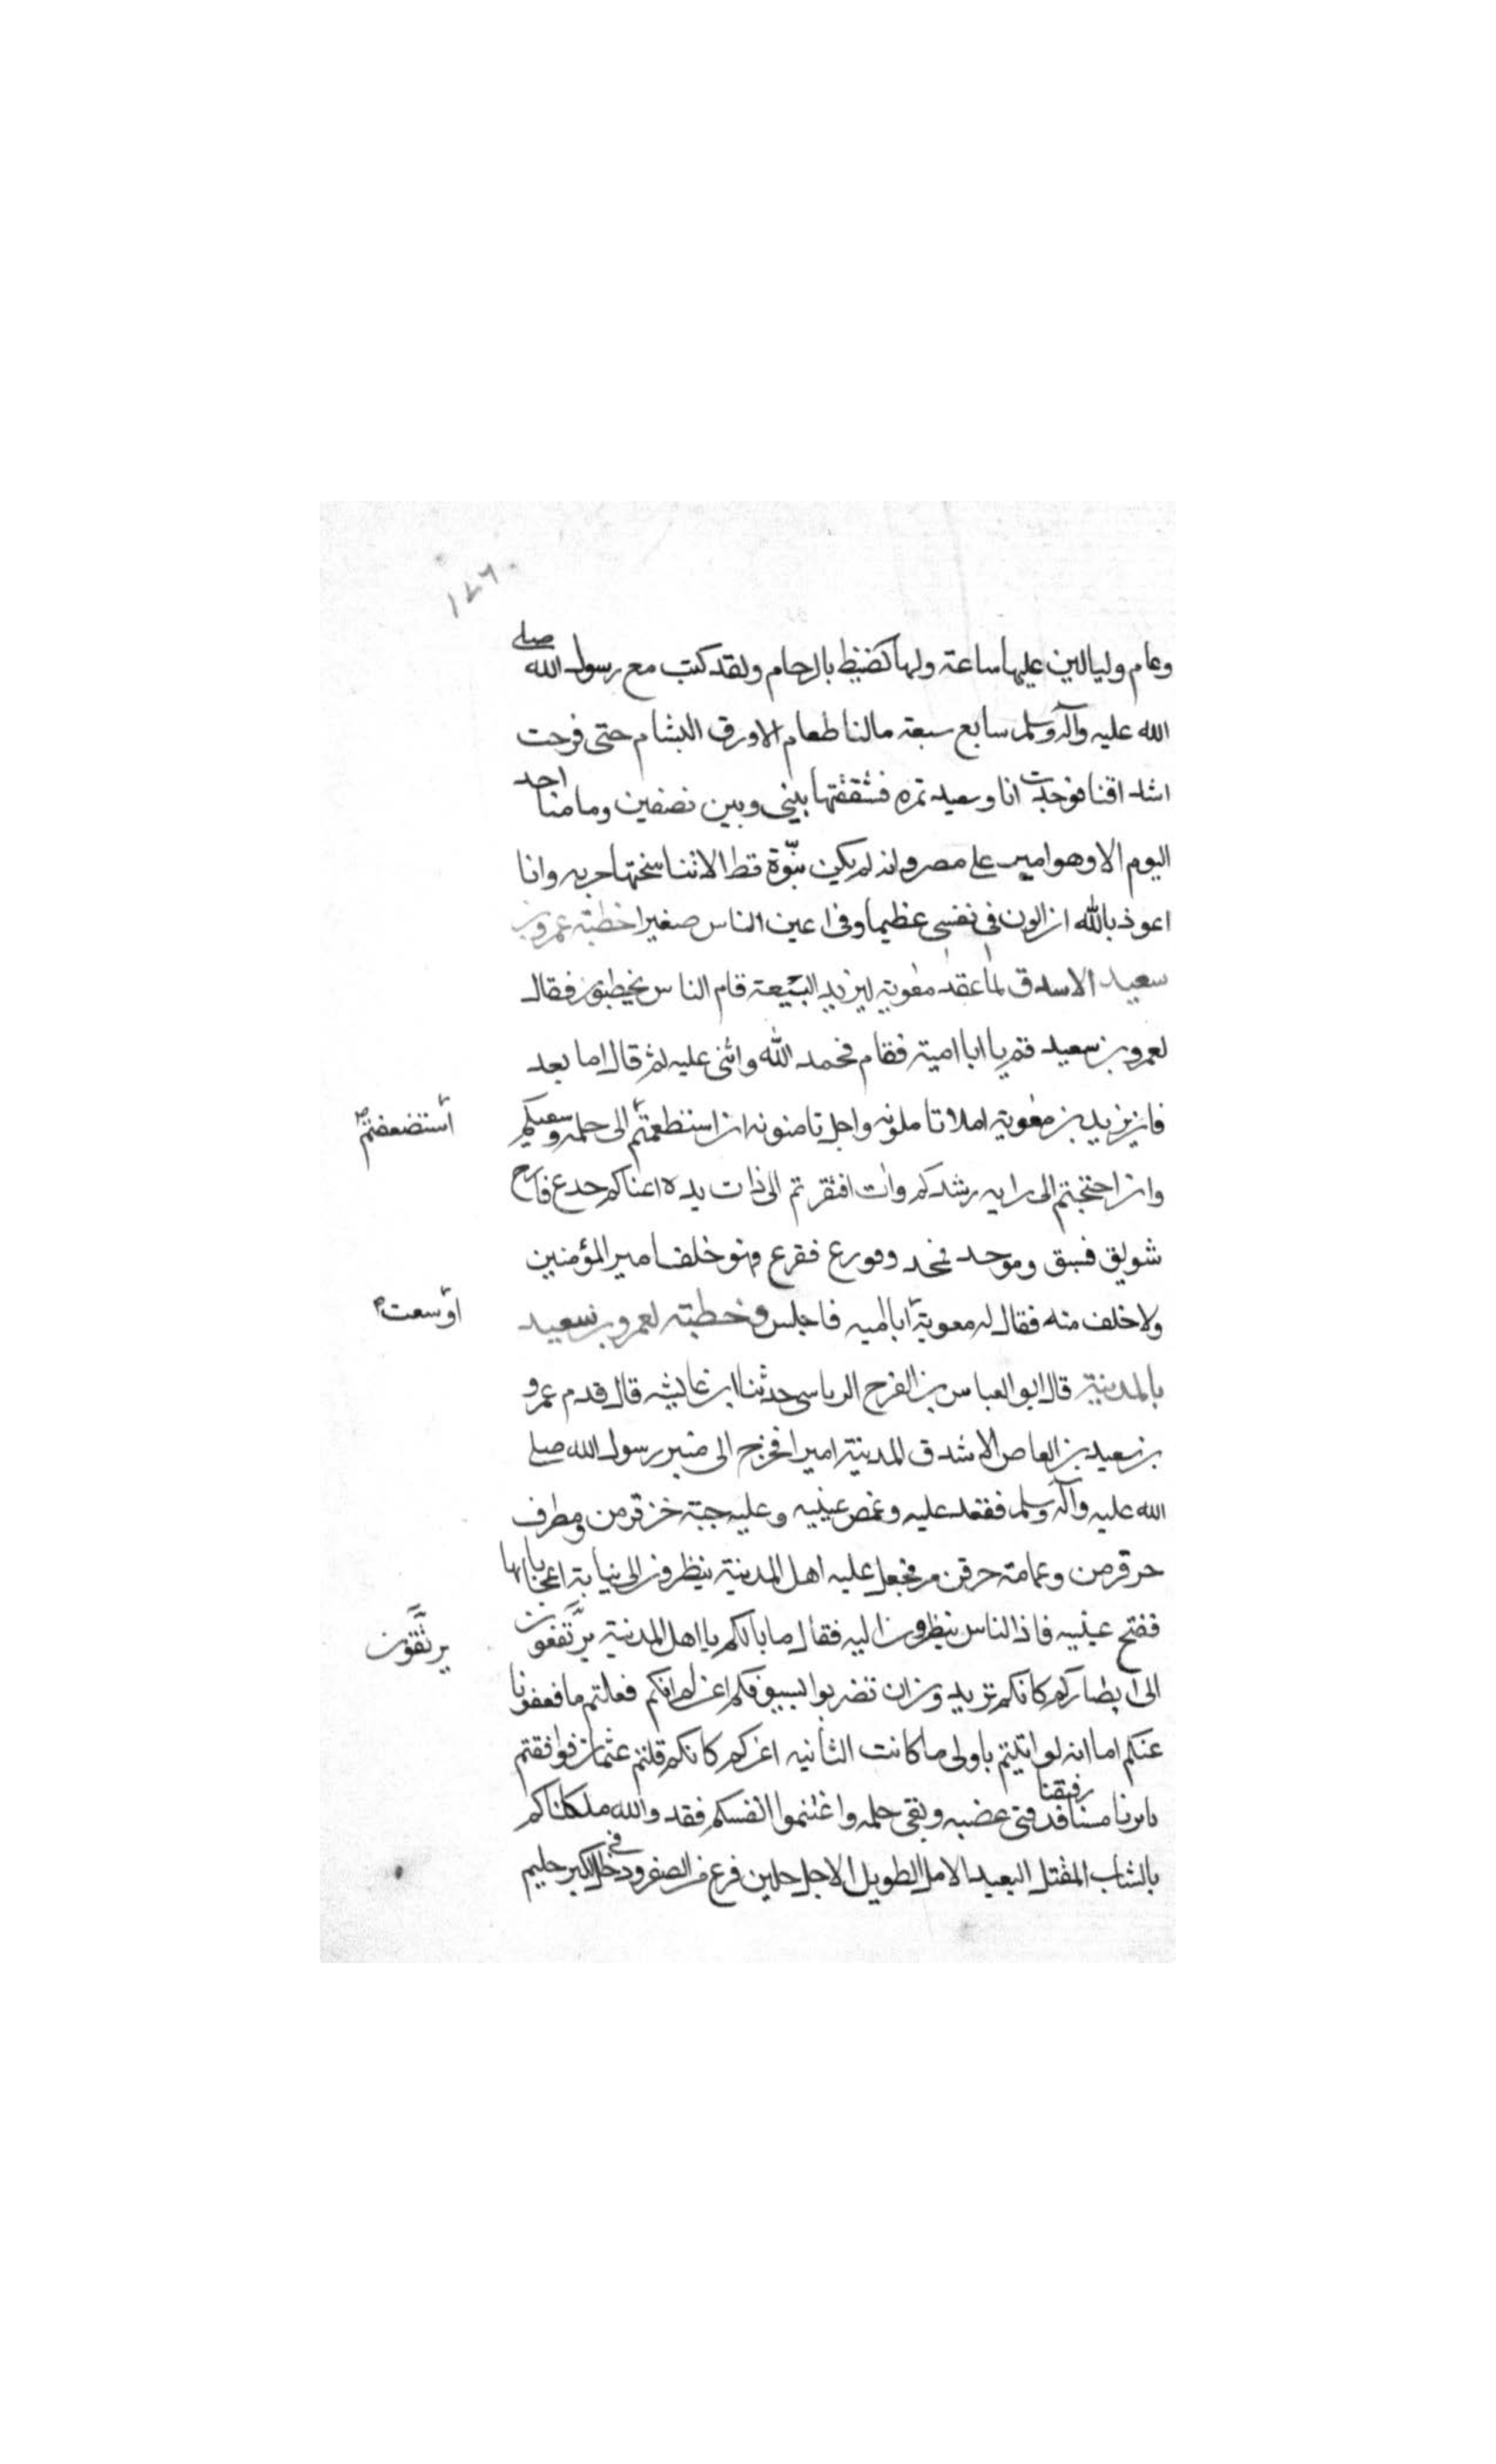 ١٤٦
وعام وليالين عليها ساعة ولها كضيظ بالرحام ولقد كنت مع رسول الله صلى
الله عليه وآله وسلم سابع سبعة مالنا طعام الا ورق البشام حتى قرحت
اشداقنا فوجدت انا وسعيد تمره فشققتها بينى وبين نصفين وما منا احد
اليوم الا وهو امير على مصر وانه لم يكن نبوة قط الا تناسختها جريه وانا
اعوذ بالله ان اكون فى نفسى عظيما وفى اعين الناس صغيرا خطبة عمرو بن
سعيد الاسدق لما عقد معوية ليزيد البيعة قام الناس يخطبون فقال
لعمرو بن سعيد قم يا ابا امية فقام فحمد الله واثنى عليه ثم قال اما بعد
فان يزيد بن معوية املا تاملونه واجل تامنونه ان استطعمتم الى حلمه وسعكم
استضعفتم
وان احتجتم الى رايه رشدكم وان افتقرتم الى ذات يده اعناكم جدع قارح
شوبق فسبق وموجد فمجد وقورع فقرع فهو خلف امير المؤمنين
ولا خلف منه فقال له معوية ابا اميه فاجلس وخطبته لعمرو بن سعيد
اوسعت
بالمدينة قال ابو العباس بن الفرح الرياسى حدثنا ابن عايشه قال قدم عمرو
بن سعيد بن العاص الاشدق المدينة اميرا فخرج الى منبر رسول الله صلى
الله عليه وآله وسلم فقعد عليه وغمض عينيه وعليه جبة خز قرمز ومطرف
خز قرمز وعمامة خز قرمز فجعل عليه اهل المدينة ينظرون الى ثيابه اعجابا بها
ففتح عينيه فاذا الناس ينظرون اليه فقال ما بالكم يا اهل المدينة يرتفعون
يرتقون
الى ابصاركم كانكم تريدون ان تضربوا بسيوفكم اغركم انكم فعلتم ما فعفونا
عنكم اما انه لو اتيتم باولى ما كانت الثانيه اغركم كانكم قلتم عثمان فوافقتم
بامرنا منا رفيقنا قد فنى عضبه وبقى حلمه واغتنموا انفسكم فقد والله ملكناكم
بالشاب المقتل البعيد الامل الطويل الاجل حلين فرع من الصغر ودخل فى الكبر حليم